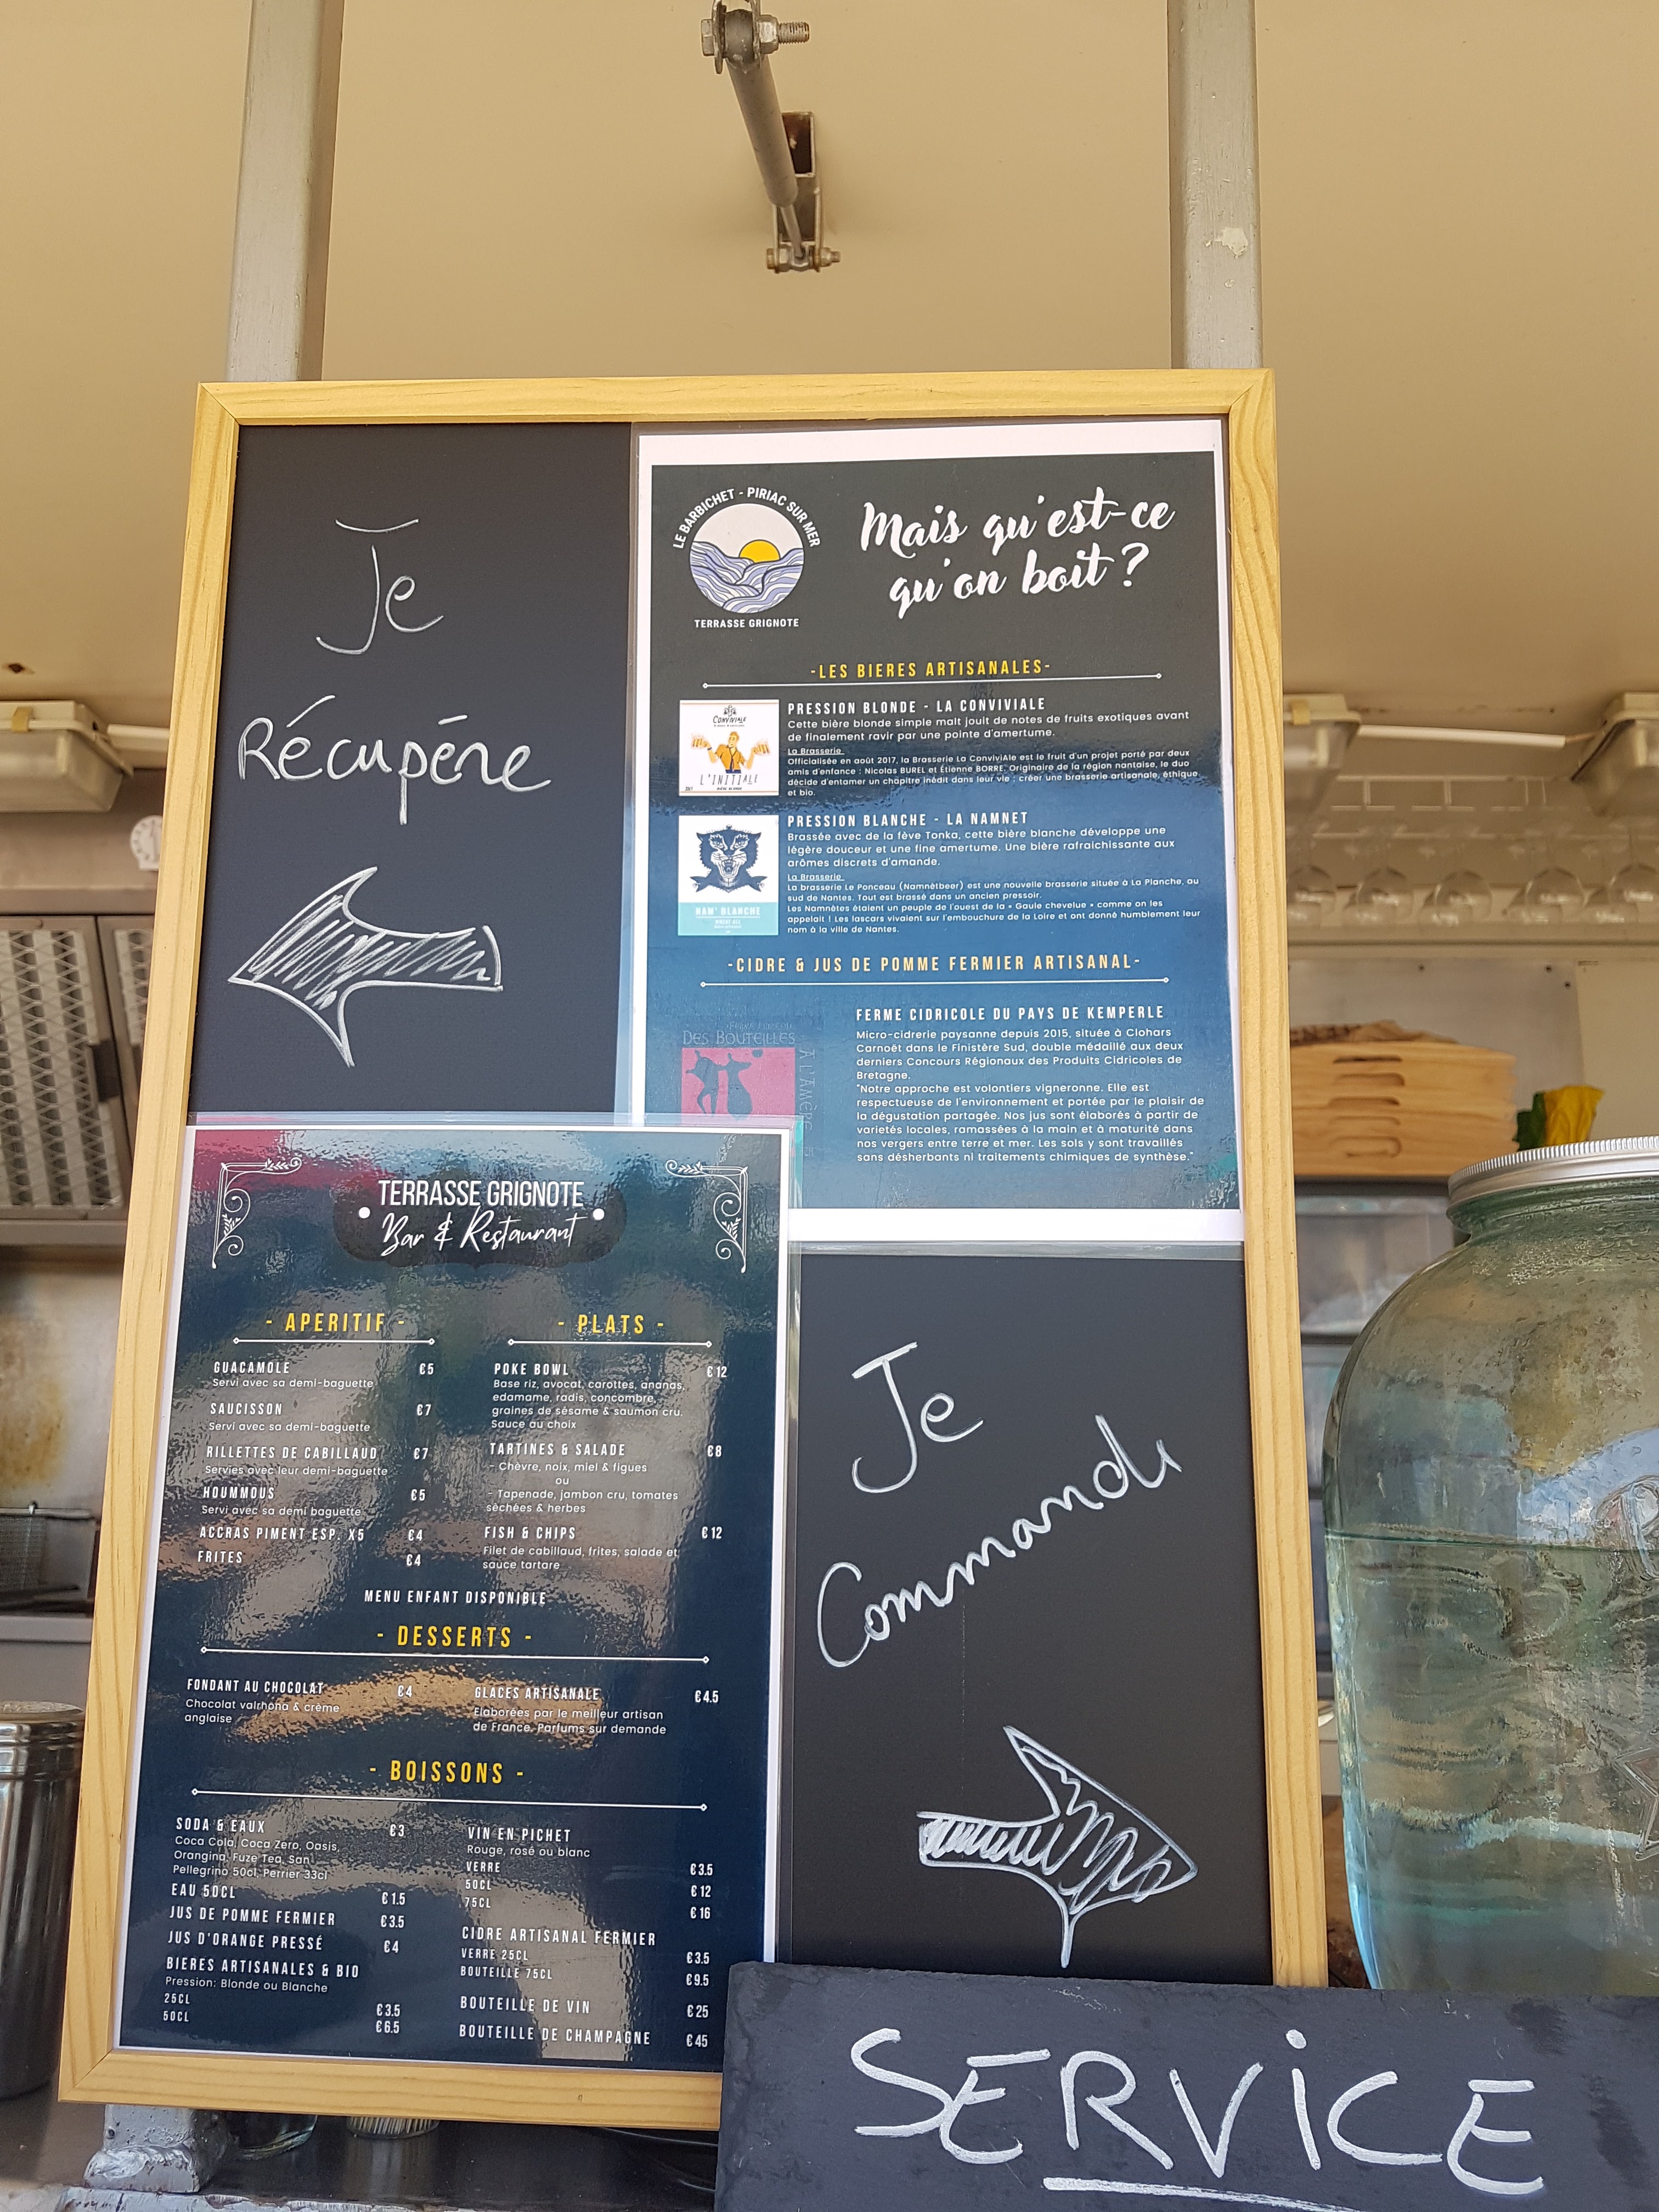 Je
Récupére
LE BARBICHET - PIRIAC SUR MER
TERRASSE GRIGNOTE
Mais qu'est-ce
qu'on boit ?
-LES BIERES ARTISANALES-
CONVIVIALE
L'INITIALE
BIÈRE BLONDE
PRESSION BLONDE - LA CONVIVIALE
Cette bière blonde simple malt jouit de notes de fruits exotiques avant
de finalement ravir par une pointe d'amertume.
La Brasserie
Officialisée en août 2017, la Brasserie La ConviviAle est le fruit d'un projet porté par deux
amis d'enfance : Nicolas BUREL et Étienne BORRE. Originaire de la région nantaise, le duo
décide d'entamer un chapitre inédit dans leur vie : créer une brasserie artisanale, éthique
et bio.
NAM' BLANCHE
PRESSION BLANCHE - LA NAMNET
Brassée avec de la fève Tonka, cette bière blanche développe une
légère douceur et une fine amertume. Une bière rafraichissante aux
arômes discrets d'amande.
La Brasserie
La brasserie Le Ponceau (Namnètbeer) est une nouvelle brasserie située à La Planche, au
sud de Nantes. Tout est brassé dans un ancien pressoir.
Les Namnètes étaient un peuple de l'ouest de la « Gaule chevelue » comme on les
appelait ! Les lascars vivaient sur l'embouchure de la Loire et ont donné humblement leur
nom à la ville de Nantes.
-CIDRE & JUS DE POMME FERMIER ARTISANAL-
DES BOUTEILLES
À L'AMÈRE
FERME CIDRICOLE DU PAYS DE KEMPERLE
Micro-cidrerie paysanne depuis 2015, située à Clohars
Carnoët dans le Finistère Sud, double médaillé aux deux
derniers Concours Régionaux des Produits Cidricoles de
Bretagne.
"Notre approche est volontiers vigneronne. Elle est
respectueuse de l'environnement et portée par le plaisir de
la dégustation partagée. Nos jus sont élaborés à partir de
varietés locales, ramassées à la main et à maturité dans
nos vergers entre terre et mer. Les sols y sont travaillés
sans désherbants ni traitements chimiques de synthèse."
TERRASSE GRIGNOTE
Bar & Restaurant
- APERITIF -
GUACAMOLE €5
Servi avec sa demi-baguette
SAUCISSON €7
Servi avec sa demi-baguette
RILLETTES DE CABILLAUD €7
Servies avec leur demi-baguette
HOUMMOUS €5
Servi avec sa demi baguette
ACCRAS PIMENT ESP. X5 €4
FRITES €4
- PLATS -
POKE BOWL €12
Base riz, avocat, carottes, ananas,
edamame, radis, concombre,
graines de sésame & saumon cru.
Sauce au choix
TARTINES & SALADE €8
- Chèvre, noix, miel & figues
ou
- Tapenade, jambon cru, tomates
séchées & herbes
FISH & CHIPS €12
Filet de cabillaud, frites, salade et
sauce tartare
MENU ENFANT DISPONIBLE
- DESSERTS -
FONDANT AU CHOCOLAT €4
Chocolat valrhona & crème
anglaise
GLACES ARTISANALE €4.5
Elaborées par le meilleur artisan
de France. Parfums sur demande
- BOISSONS -
SODA & EAUX €3
Coca Cola, Coca Zero, Oasis,
Orangina, Fuze Tea, San
Pellegrino 50cl, Perrier 33cl
EAU 50CL €1.5
JUS DE POMME FERMIER €3.5
JUS D'ORANGE PRESSÉ €4
BIERES ARTISANALES & BIO
Pression: Blonde ou Blanche
25CL €3.5
50CL €6.5
VIN EN PICHET
Rouge, rosé ou blanc
VERRE €3.5
50CL €12
75CL €16
CIDRE ARTISANAL FERMIER
VERRE 25CL €3.5
BOUTEILLE 75CL €9.5
BOUTEILLE DE VIN €25
BOUTEILLE DE CHAMPAGNE €45
Je
Commande
SERVICE